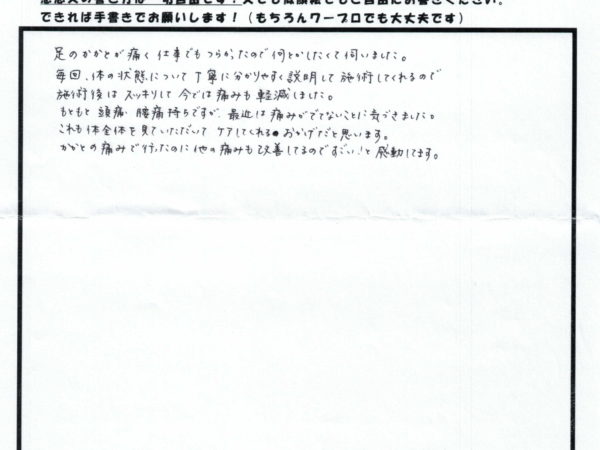 できれば手書きでお願いします!(もちろんワープロでも大丈夫です)
足のかかとが痛く仕事でもつらかったので何とかしたくて伺いました。
毎回、体の状態について丁寧に分かりやすく説明して施術してくれるので
施術後はスッキリして今では痛みも軽減しました。
もともと頭痛、腰痛持ちですが、最近は痛みがでてないことに気づきました。
これも体全体を見ていただいてケアしてくれるおかげだと思います。
かかとの痛みで行ったのに他の痛みも改善してるのですごい!と感動してます。